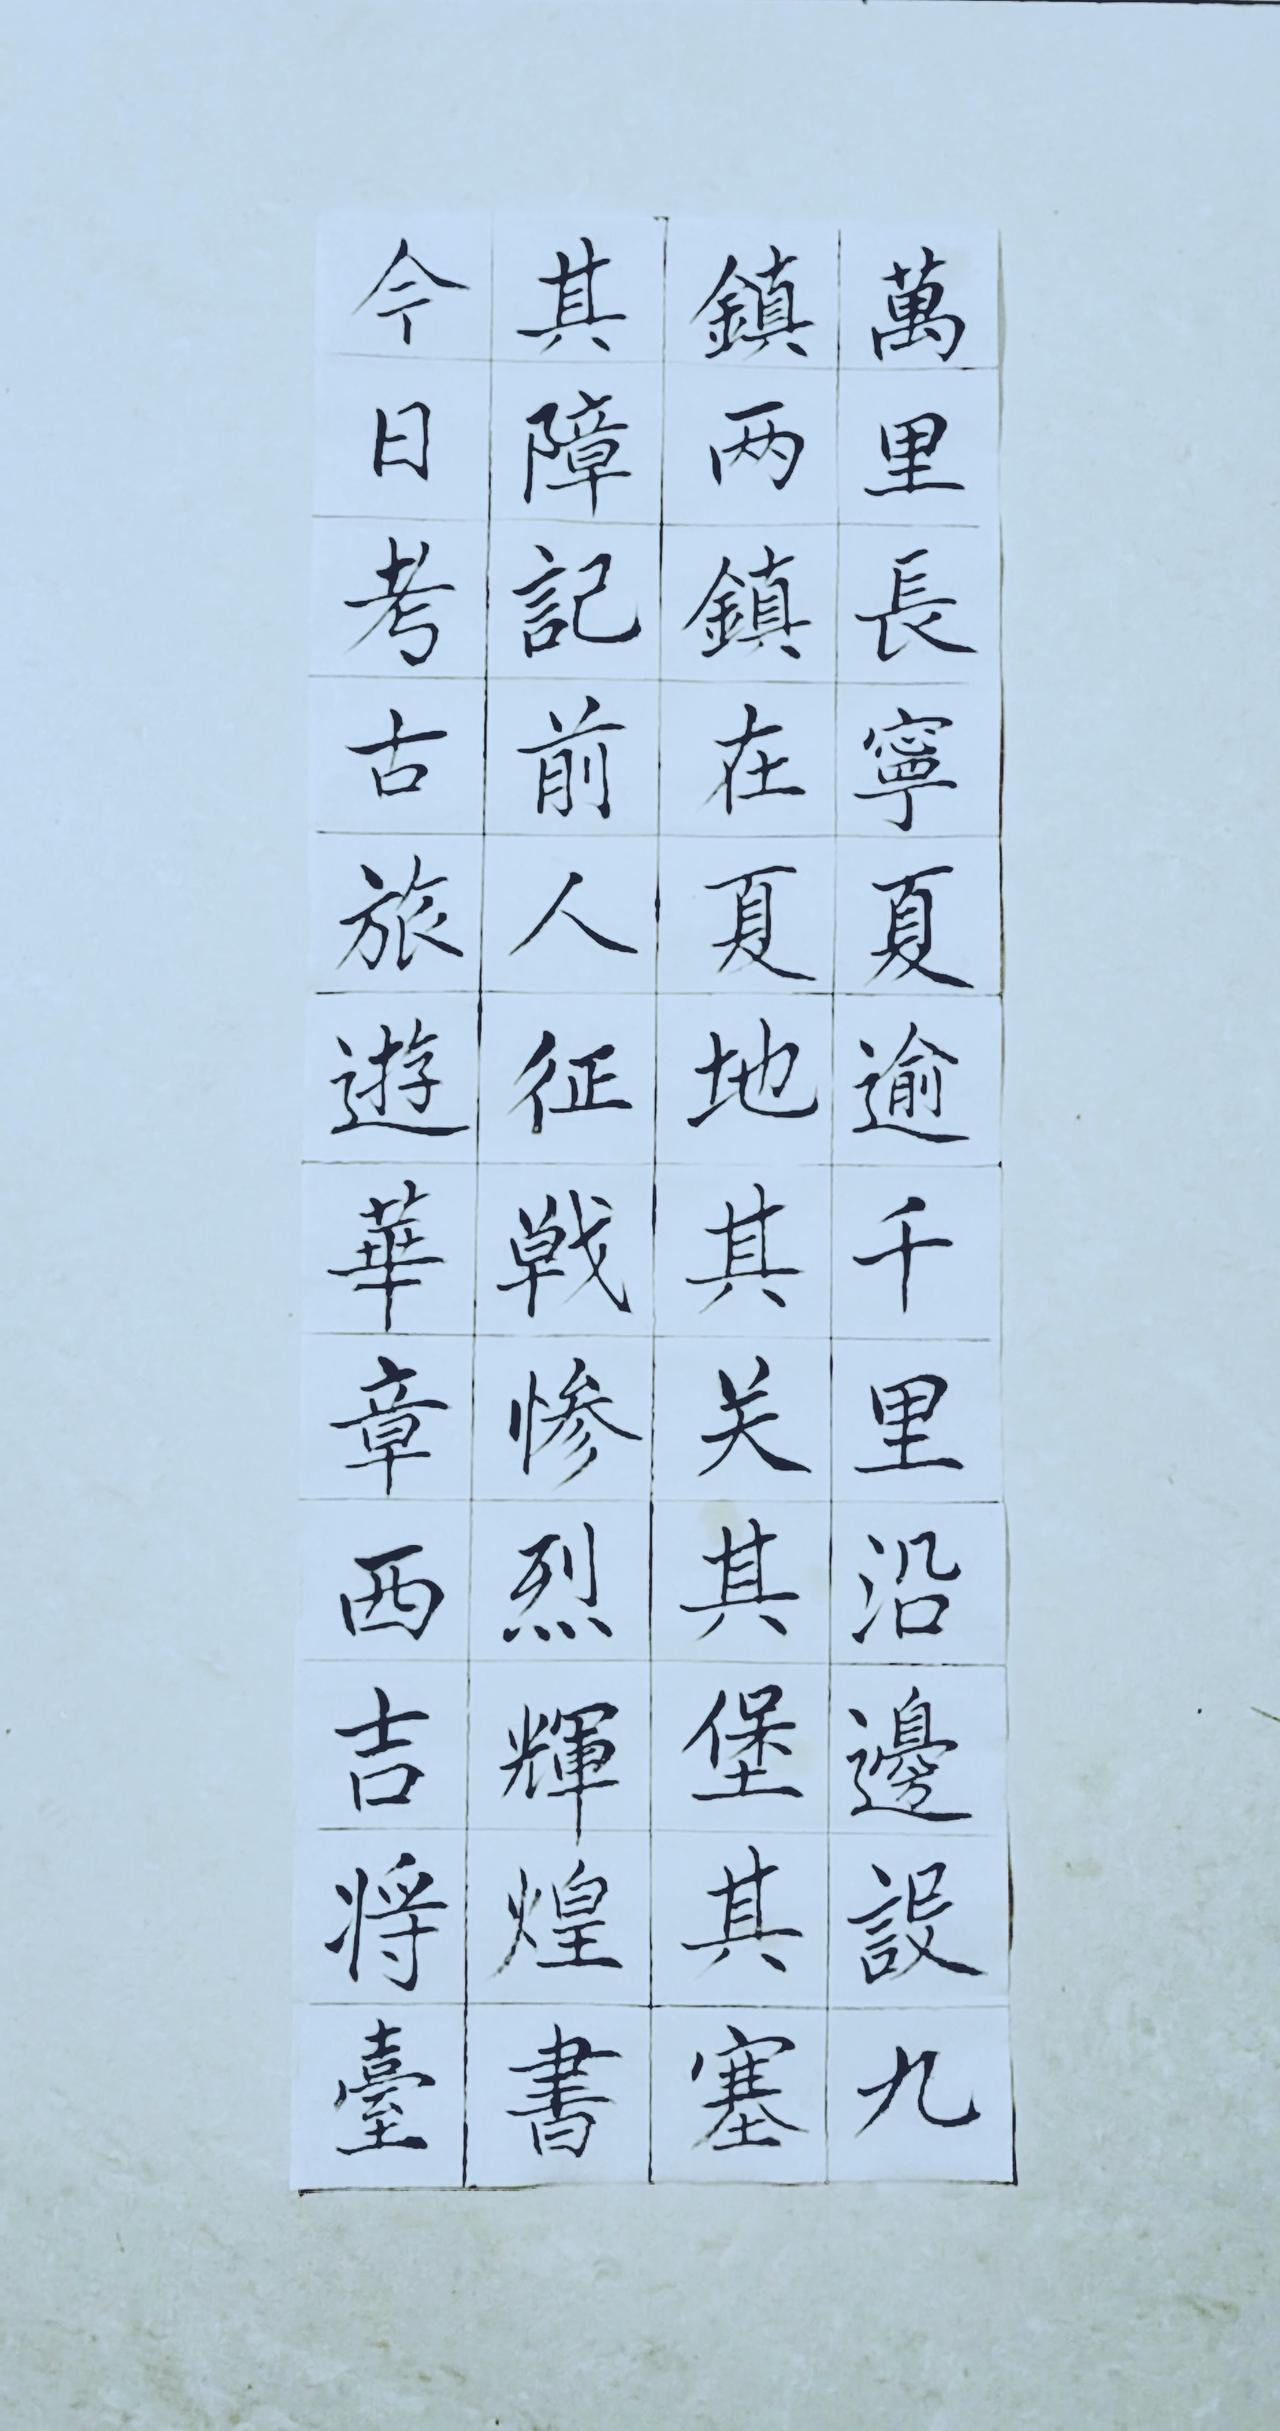 萬里長寧夏逾千里沿邊設九
鎮两鎮在夏地其关其堡其塞
其障記前人征戦惨烈輝煌書
今日考古旅遊華章西吉将臺